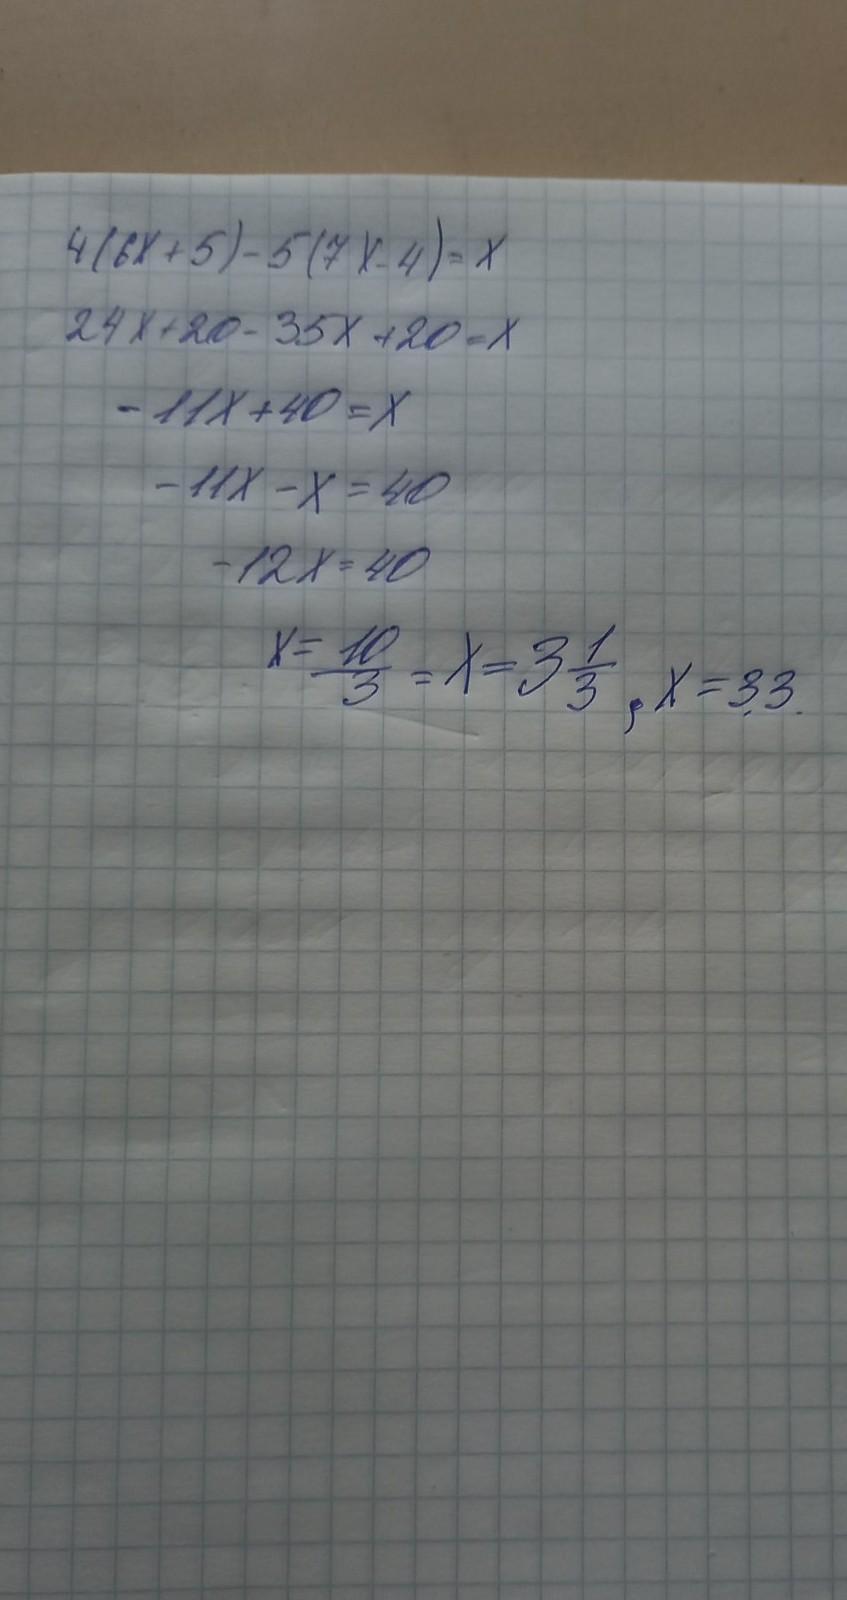 4(6x+5)-5(7x-4)=x
24x+20-35x+20=x
-11x+40=x
-11x-x=40
-12x=40
x=10/3=x=3 1/3, x=3.3.